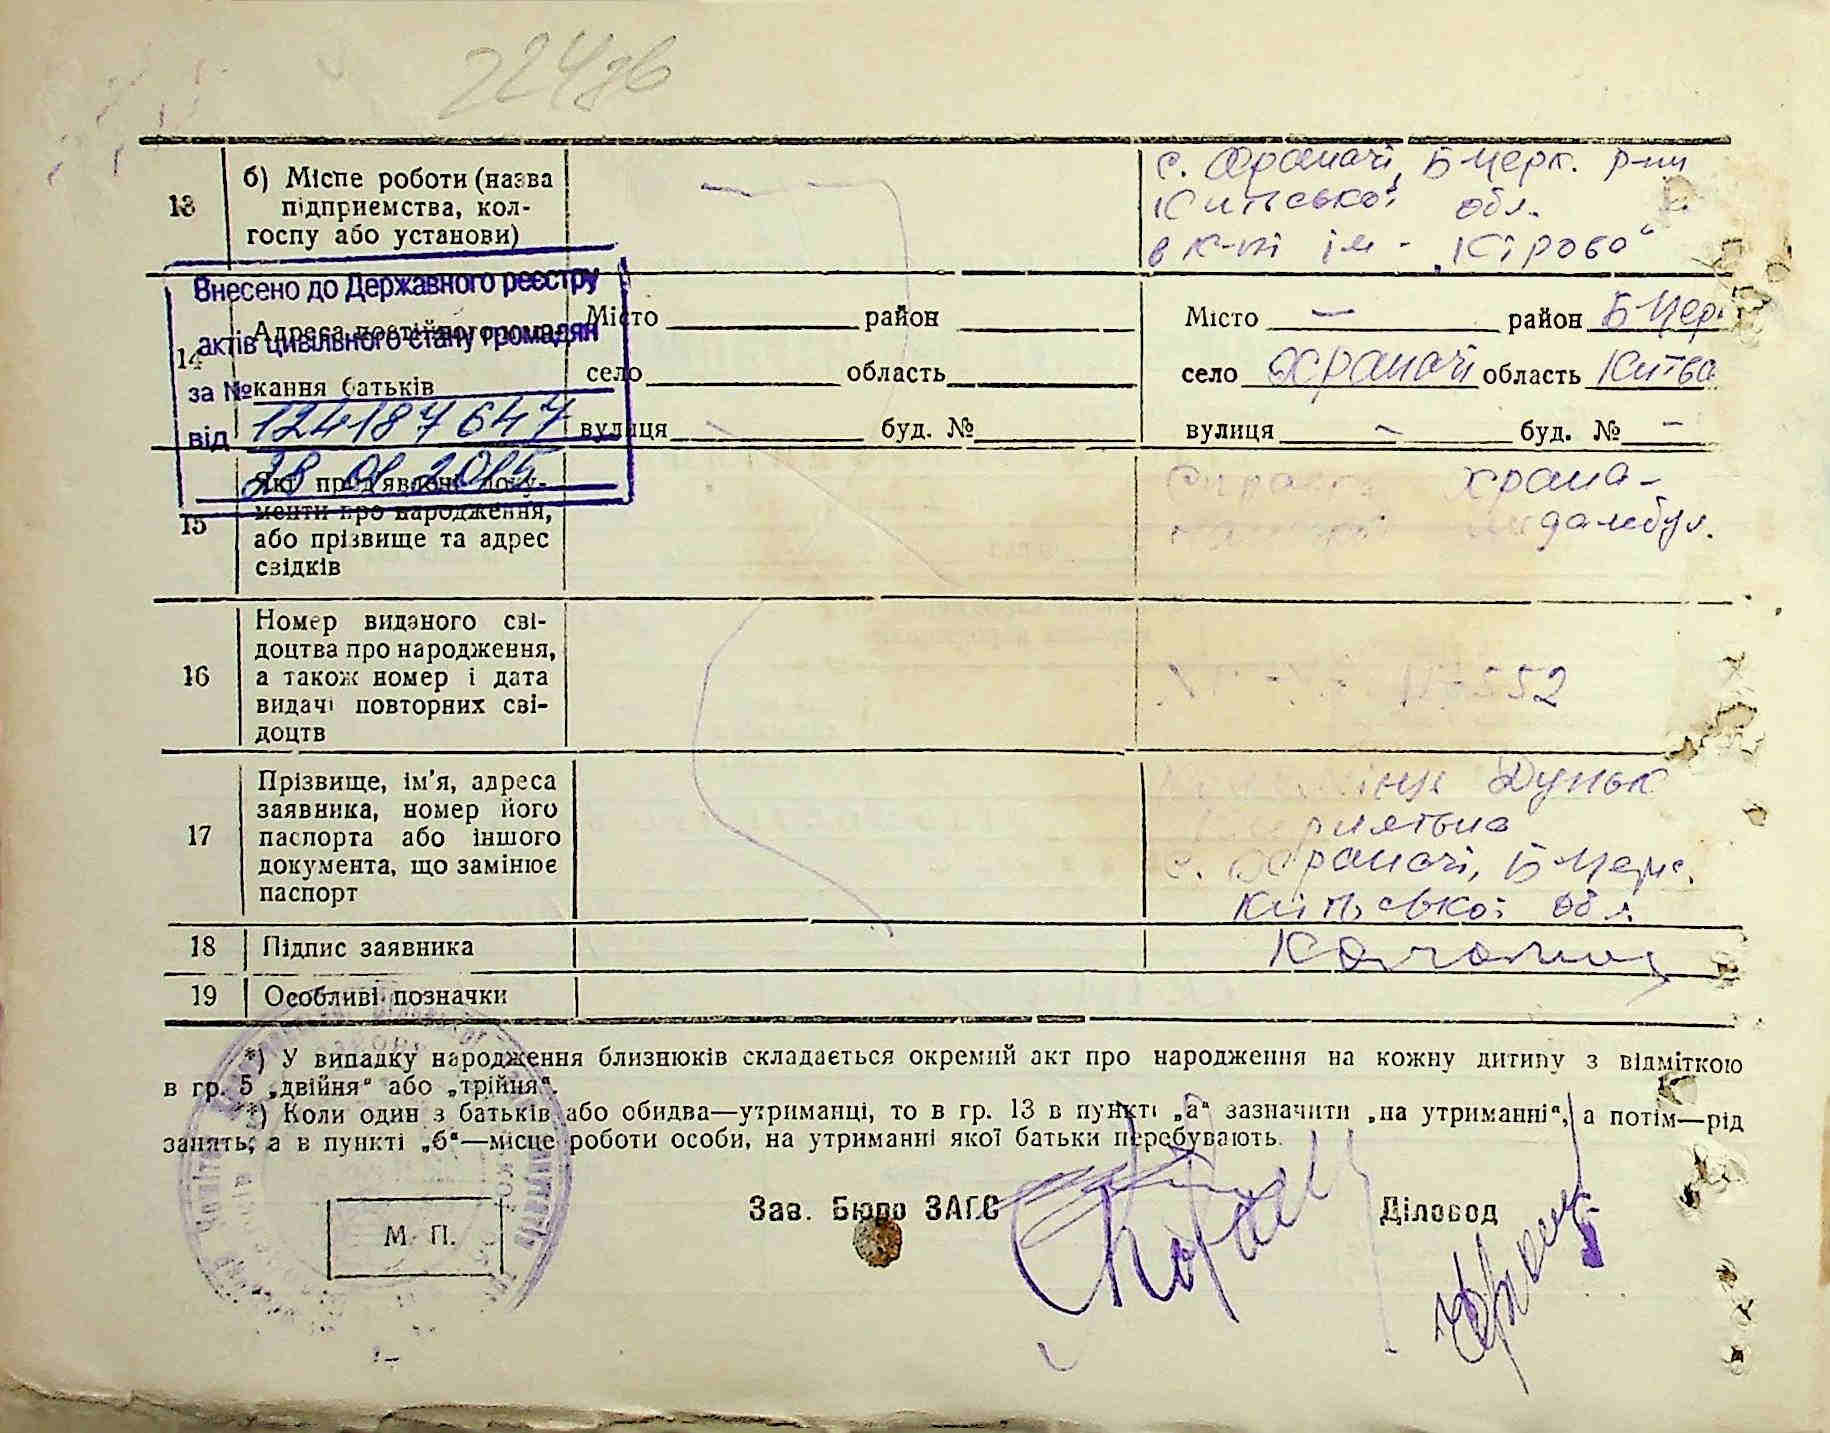 224зв
13
б) Місце роботи (назва
підприємства, кол-
госпу або установи)
с. Храпачі, Б Церк. р-ну
Київської обл.
в к-пі ім - „Кірова“
Внесено до Державного реєстру
актів цивільного стану громадян
за №
124187647
від
28 01 2015
14
Адреса постійного
кання батьків
Місто район
село область
вулиця буд. №
Місто — район Б Цер
село Храпачі область Київс
вулиця — буд. № —
15
Які пред'явлені доку-
менти про народження,
або прізвище та адрес
свідків
Справка Храпа-
амбул.
16
Номер виданого сві-
доцтва про народження,
а також номер і дата
видачі повторних сві-
доцтв
552
17
Прізвище, ім'я, адреса
заявника, номер його
паспорта або іншого
документа, що замінює
паспорт
с. Храпачі, Б Церк.
Київської обл.
18
Підпис заявника
19
Особливі позначки
*) У випадку народження близнюків складається окремий акт про народження на кожну дитину з відміткою
в гр. 5 „двійня“ або „трійня“.
**) Коли один з батьків або обидва—утриманці, то в гр. 13 в пункті „а“ зазначити „на утриманні“, а потім—рід
занять, а в пункті „б“—місце роботи особи, на утриманні якої батьки перебувають.
М. П.
Зав. Бюро ЗАГС
Діловод